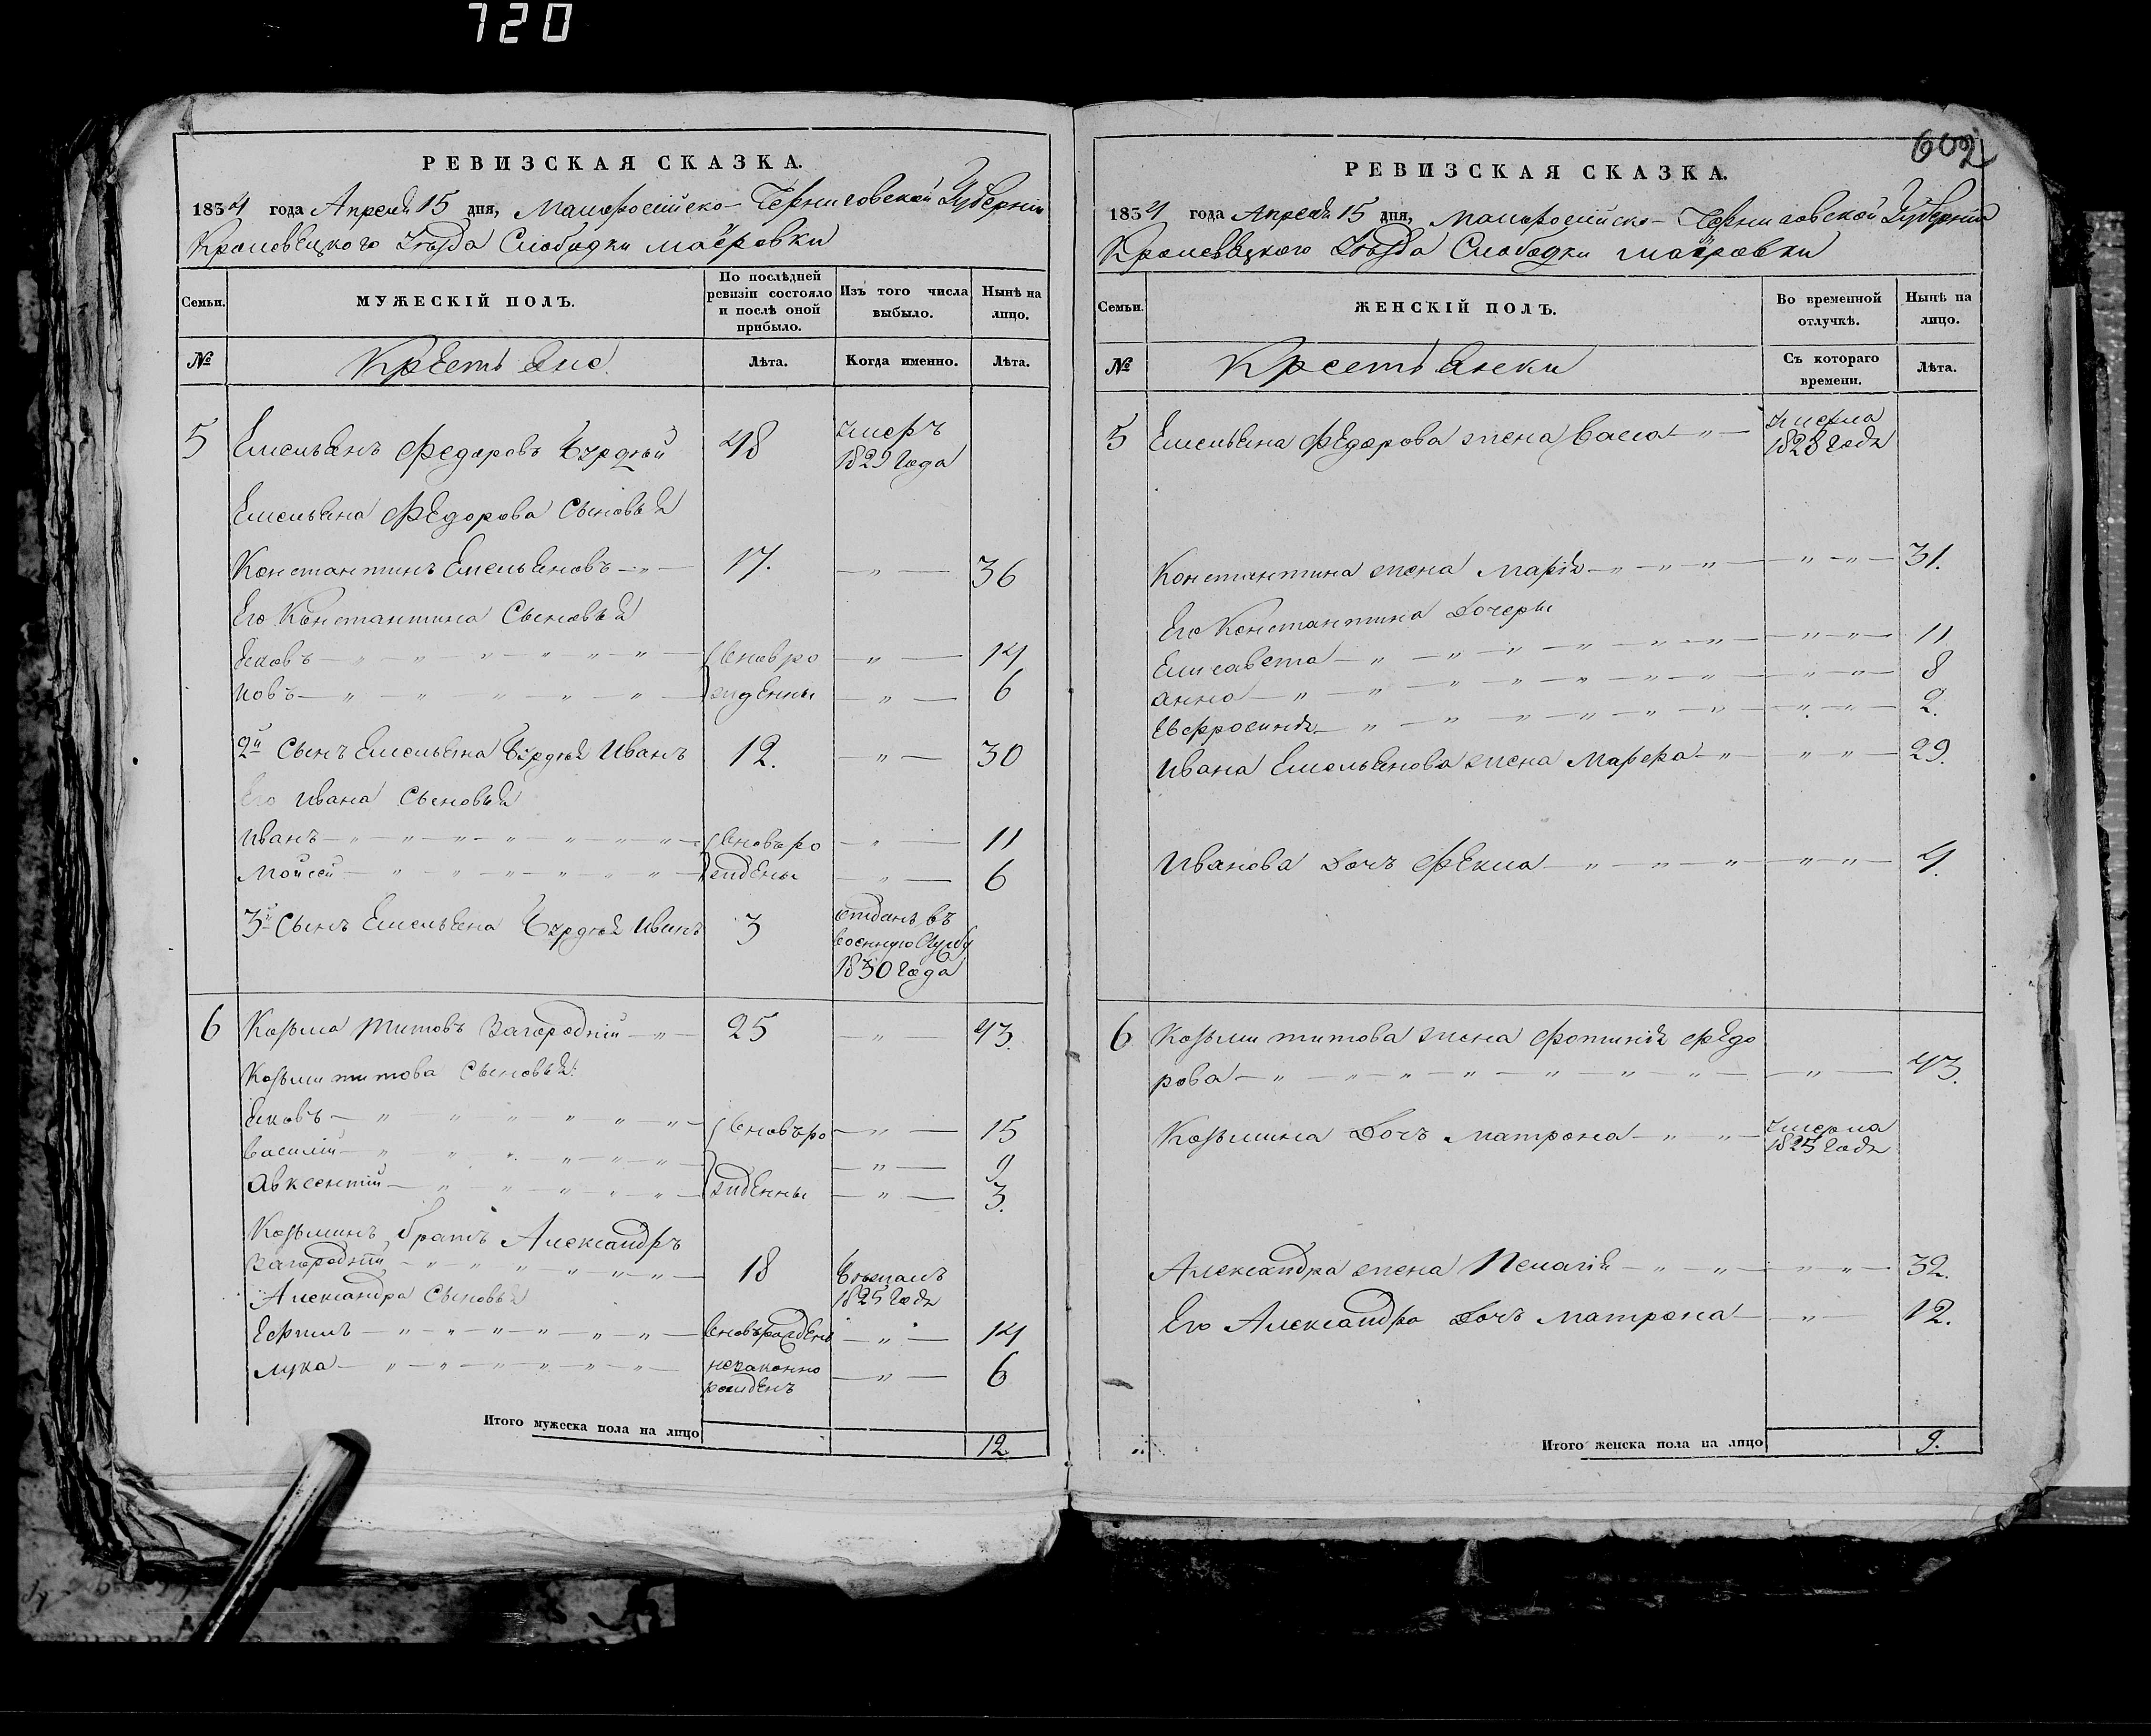 720
РЕВИЗСКАЯ СКАЗКА.
1834 года Апреля 15 дня, Малороссійско-Черниговской Губерніи
Кролевецкого Уѣзда Слободки маеровки
Семьи. МУЖЕСКІЙ ПОЛЪ. По послѣдней ревизіи состояло и послѣ оной прибыло. Изъ того числа выбыло. Нынѣ на лицо.
№ Крестьяне. Лѣта. Когда именно. Лѣта.
5 Емельянъ Федоровъ 48 умеръ
1829 года
Емельяна Федорова Сыновья
Константинъ Емельяновъ 17. 36
Его Константина Сыновья
Яковъ вновъ ро 14
Іовъ жденны 6
2й Сынъ Емельяна Иванъ 12. 30
Его Ивана Сыновья
Иванъ вновъ ро 11
Мойсей ждены 6
3й Сынъ Емельяна Иванъ 3 отданъ въ
военную службу
1830 года
6 Козьма Титовъ Загородній 25 43.
Козьми титова Сыновья:
Яковъ вновъ ро 15
Василій 9
Авксентій жденны 3.
Козьминъ братъ Александръ
Загородній 18
1825 года
Александра Сыновья
Ефимъ вновърожденъ 14
Лука незаконно 6
рожденъ
Итого мужеска пола на лицо 12
602
РЕВИЗСКАЯ СКАЗКА.
1834 года Апреля 15 дня, Малороссійско-Черниговской Губерніи
Кролевецкого Уѣзда Слободки маеровки
Семьи. ЖЕНСКІЙ ПОЛЪ. Во временной отлучкѣ. Нынѣ на лицо.
№ Крестьянски Съ котораго времени. Лѣта.
5 Емельяна Федорова жена Васса умерла
1828 года
Константина жена Марія 31.
Его Константина Дочеры
Елисавета 11
Анна 8
Евфросинія 2.
Ивана Емельянова жена Марфа 29.
Иванова Дочъ Фекла 4.
6 Козьми титова жена Фотинія Федо
рова 43.
Козьмина Дочъ Матрона умерла
1825 года
Александра жена Пелагія 32.
Его Александра Дочъ Матрона 12.
Итого женска пола на лицо 9.